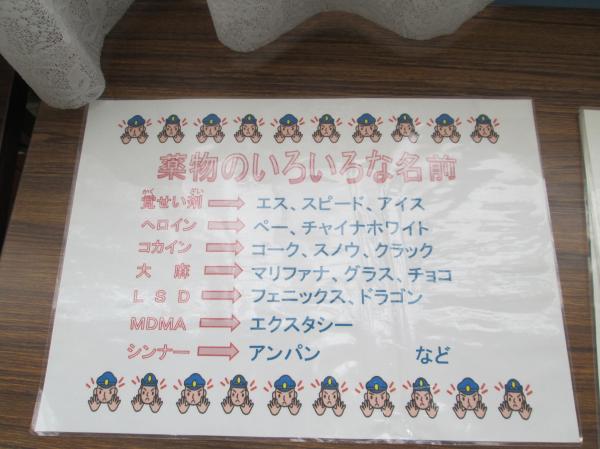 薬物のいろいろな名前
覚せい剤 → エス、スピード、アイス
ヘロイン → ペー、チャイナホワイト
コカイン → コーク、スノウ、クラック
大麻 → マリファナ、グラス、チョコ
LSD → フェニックス、ドラゴン
MDMA → エクスタシー
シンナー → アンパン など